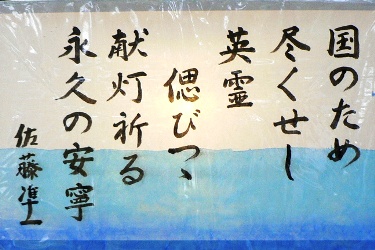 国のため
尽くせし
英霊
偲びつゝ
献灯祈る
永久の安寧
佐藤準一